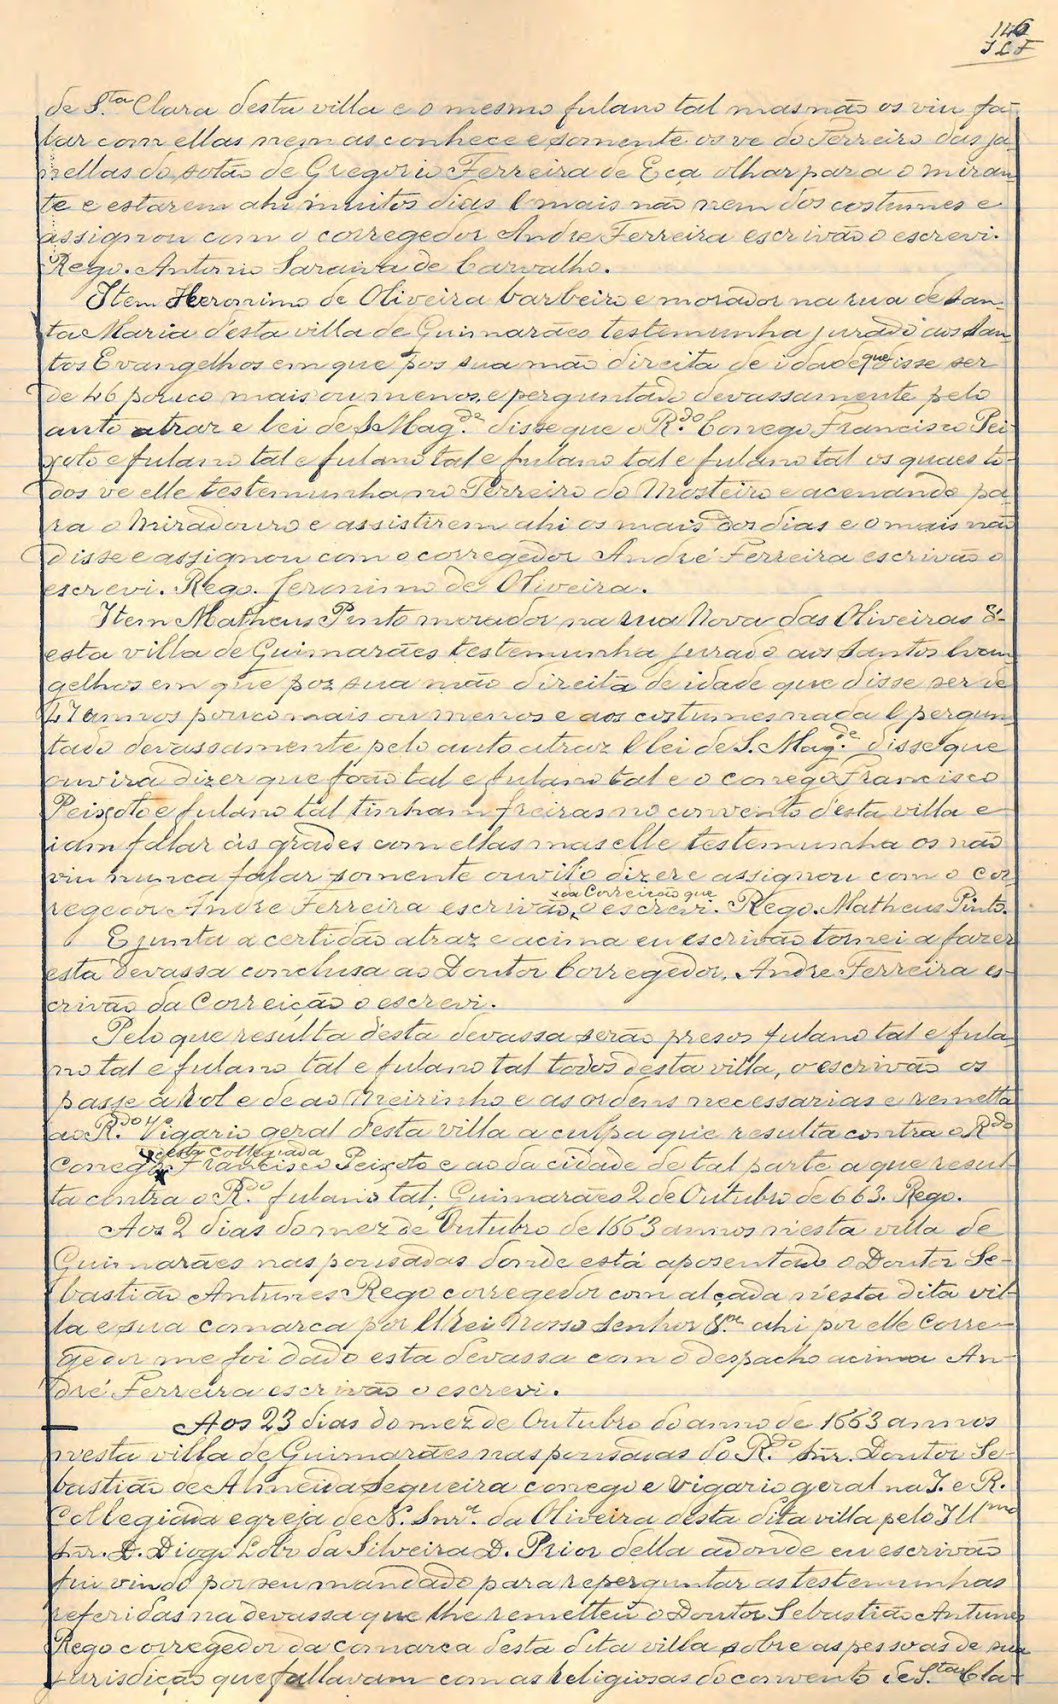 146
J L F
de S.ta Clara desta villa e o mesmo fulano tal mas não os viu fa-
lar com ellas nem as conhece e somente os ve do Terreiro das ja-
nellas do sotão de Gregorio Ferreira de Eça olhar para o miran-
te e estarem ahi muitos dias e mais não nem dos costumes e
assignou com o corregedor Andre Ferreira escrivão o escrevi.
Rego. Antonio Saraiva de Carvalho.
Item Heronimo de Oliveira barbeiro e morador na rua de San-
ta Maria d'esta villa de Guimarães testemunha jurado aos San-
tos Evangelhos em que pos sua mão direita de idade que disse ser
de 46 pouco mais ou menos, e perguntado devassamente pelo
auto atraz e lei de S Mag.de disse que o R.do Conego Francisco Pei-
xoto e fulano tal e fulano tal e fulano tal e fulano tal os quaes to-
dos ve elle testemunha no Terreiro do Mosteiro e acenando pa-
ra o Miradouro e assistirem ahi os mais dos dias e o mais não
disse e assignou com o corregedor André Ferreira escrivão o
escrevi. Rego. Jeronimo de Oliveira.
Item Matheus Pinto morador na rua Nova das Oliveiras d'-
esta villa de Guimarães testemunha jurado aos Santos Evan-
gelhos em que poz sua mão direita de idade que disse ser de
47 annos pouco mais ou menos e aos costumes nada e pergun-
tado devassamente pelo auto atraz e lei de S. Mag.de disse que
ouvira dizer que foão tal e fulano tal e o conego Francisco
Peixoto e fulano tal tinham freiras no convento d'esta villa e
iam fallar ás grades com ellas mas elle testemunha os não
viu nunca falar somente ouvito dizer e assignou com o Cor-
da Correição que
regedor Andre Ferreira escrivão o escrevi. Rego. Matheus Pinto.
E junta a certidão atraz e acima eu escrivão tornei a fazer
esta devassa conclusa ao Doutor Corregedor, Andre Ferreira es-
crivão da Correição o escrevi.
Pelo que resulta desta devassa serão presos fulano tal e fula-
no tal e fulano tal e fulano tal todos desta villa, o escrivão os
passe a rol e de ao Meirinho e as ordens necessarias e remetta
ao R.do Vigario geral desta villa a culpa que resulta contra o R.do
desta Collegiada
Conego Francisco Peixoto e ao da cidade de tal parte a que resul-
ta contra o R.do fulano tal; Guimarães 2 de Outubro de 663. Rego.
Aos 2 dias do mez de Outubro de 1663 annos n'esta villa de
Guimarães nas pousadas donde está aposentado o Doutor Se-
bastião Antunes Rego corregedor com alçada n'esta dita vil-
la e sua comarca por ElRei Nosso Senhor &.ª ahi por elle Corre-
gedor me foi dado esta devassa com o despacho acima An-
dré Ferreira escrivão o escrevi.
Aos 23 dias do mez de Outubro do anno de 1663 annos
nesta villa de Guimarães nas pousadas do R.do Snr. Doutor Se-
bastião de Almeida Sequeira conego e vigario geral na I. e R.
Collegiada egreja de N. Snr.ª da Oliveira desta dita villa pelo Ill.mo
Snr. D. Diogo Lobo da Silveira D. Prior della adonde eu escrivão
fui vindo por seu mandado para reperguntar as testemunhas
referidas na devassa que lhe remetteu o Doutor Sebastião Antunes
Rego corregedor da comarca desta dita villa sobre as pessoas de sua
jurisdição que fallavam com as religiosas do convento de S.ta Cla-